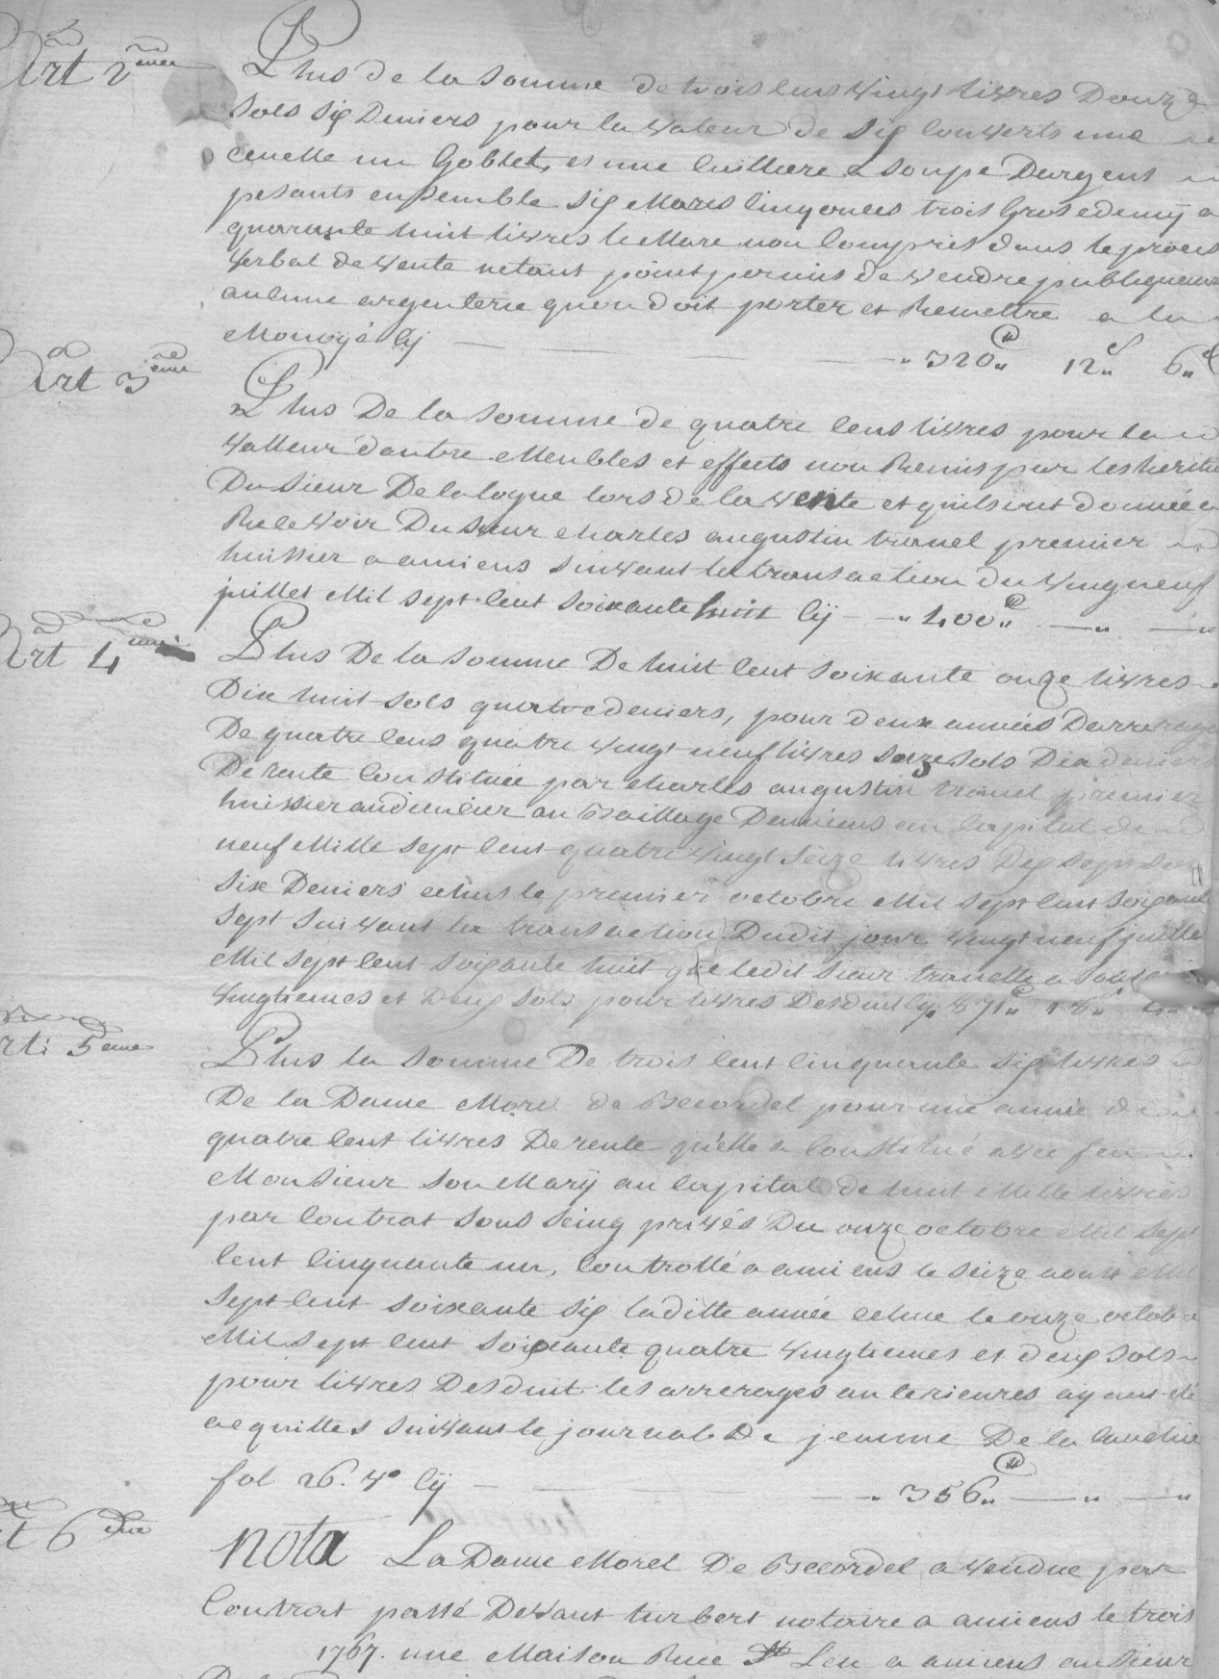 Art 2 eme
Plus de la Somme de trois Cens Vingt livres Douze
Sols Six Deniers pour la Valeur de Six Couverts une
un Goblet, et une Cuilliere a Soupe Dargent
pesants ensemble Six Marcs Cinq onces trois Gros et demÿ a
quarante huit livres le Marc non Compris dans le proces
Verbal de Vente netant point permis de Vendre publiquement
aucune argenterie quon doit porter et Remettre a la
Monoye Cy 320 12 6
Art 3 eme
Plus De la Somme de quatre Cens livres pour la
Valleur dautre Meubles et effects non Remis par les herit
Du Sieur Delaloque lors de la Vente et quils ont donnée a
Recevoir Du Sieur Charles augustin trancl premier
huissier a amiens Suivant la transaction du Vingt neuf
juillet Mil Sept Cent Soixante huit Cÿ 400
Art 4 eme
Plus De la Somme De huit Cent Soixante onze livres
Dix huit Sols quatre deniers, pour deux années Darrerage
De quatre Cens quatre Vingt neuf livres Seize Sols Dix deniers
De rente Constituée par Charles augustin premier
huissier audiencier au Baillage Damiens au Capital de
neuf Mille Sept Cent quatre Vingt Seize livres Dix Sept Sols
Six Deniers echus le premier octobre Mil Sept Cent Soixante
Sept Suivant la transaction Dudit jour Vingt neuf juillet
Mil Sept Cent Soixante huit que ledit Sieur a
Vingtiemes et Deux Sols pour livres Desduit Cy 871 18 4
Art: 5 eme
Plus la Somme De trois Cent Cinquante Six livres
De la Dame Morel de Becordel pour une année de
quatre Cent livres De rente quelle a Constitué avec feu
Monsieur Son Marÿ au Capital de huit Mille livres
par Contrat Sous Seing privés Du onze octobre Mil Sept
Cent Cinquante un, Controllé a amiens le Seize aoust Mil
Sept Cent Soixante Six laditte année echue le onze octobre
Mil Sept Cent Soixante quatre Vingtiemes et deux Sols
pour livres Desduit les arrerages anterieures aÿant été
acquittes Suivant le journal De jeanne De la
fol 26. Vo Cÿ 356
Art 6 eme
nota La Dame Morel De Becordel a Vendue par
Contrat passé Devant turbert notaire a amiens le trois
1767. une Maison Rue St Leu a amiens au Sieur